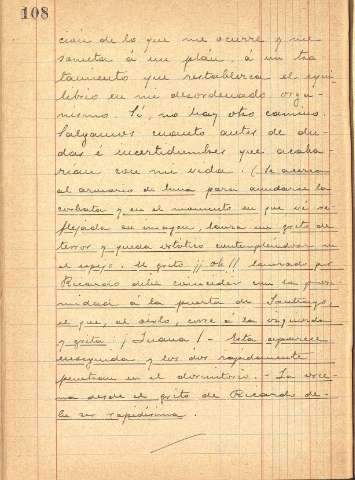 108
cion de lo que me ocurre y me
someta á un plan, á un tra
tamiento que restablezca el equi
librio en mi desordenado orga-
nismo. Sí, no hay otro camino.
Salgamos cuanto antes de du-
das é incertidumbres que acaba-
rían con mi vida. (Se acerca
al armario de luna para anudarse la
corbata y en el momento en que vé re-
flejada su imagen, lanza un grito de
terror y queda estático contemplandose en
el espejo. El grito ¡¡Oh!! lanzado por
Ricardo debe coincidir con la proxi-
midad á la puerta de Santiago,
el que, al oirlo, corre á la izquierda
y grita: ¡Juana! - Esta aparece
enseguida y los dos rapidamente
penetran en el dormitorio. - La esce-
na desde el grito de Ricardo de-
be ser rapidísima.